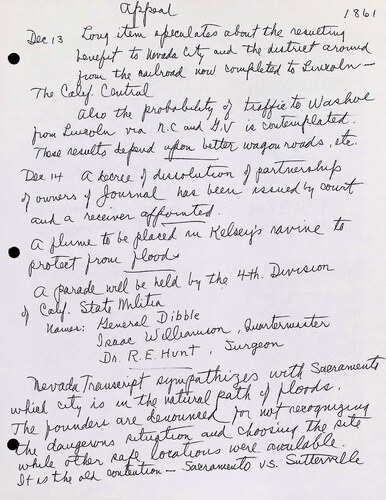 Appeal
1861
Dec 13 Long item speculates about the resulting
benefit to Nevada City and the district around
from the railroad now completed to Lincoln -
The Calif. Central
Also the probability of traffic to Washoe
from Lincoln via N.C and G.V is contemplated.
These results depend upon better wagon roads, etc.
Dec 14 A decree of dissolution of partnership
of owners of Journal has been issued by court
and a receiver appointed.
A flume to be placed in Kelsey's ravine to
protect from floods
A parade will be held by the 4th. Division
of Calif. State Militia
Names: General Dibble
Isaac Williamson, Quartermaster
Dr. R.E. Hunt, Surgeon
Nevada Transcript sympathizes with Sacramento
which city is in the natural path of floods.
The founders are denounced for not recognizing
the dangerous situation and choosing the site
while other safe locations were available.
It is the old contention - Sacramento vs. Sutterville